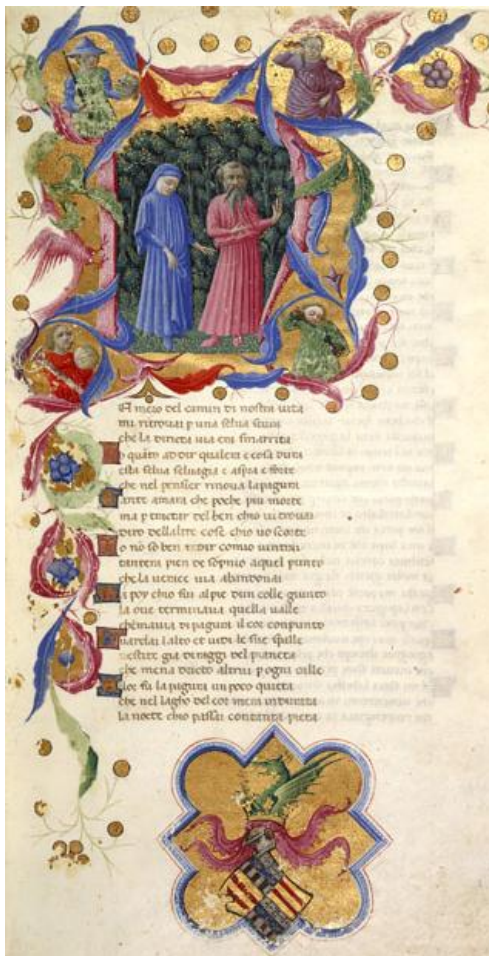 El mezo del camin di nostra uita
mi ritrouai p una selua scura
che la dirieta uia era smarrita
o quāto a dir qual era e cosa dura
esta selua seluagia e aspra e forte
che nel pensier rinoua la pagura
tante amara che poche piu morte
ma p tractar del ben chio ui trouai
diro dellaltre cose chio uo scorte
o nō so ben redir comio uintrai
tantera pien de sopnio a quel punto
che la uerace uia abandonai
a poy chio fui al pie dun colle giunto
la oue terminaua quella ualle
che mauia di pagura il cor conpunto
uardai lalto et uidi le sue spalle
uestite gia di raggi del pianeta
che mena dricto altrui p ogni calle
lor fu la pagura un poco quieta
che nel lagho del cor mera indurata
la nocte chio passai con tanta pieta